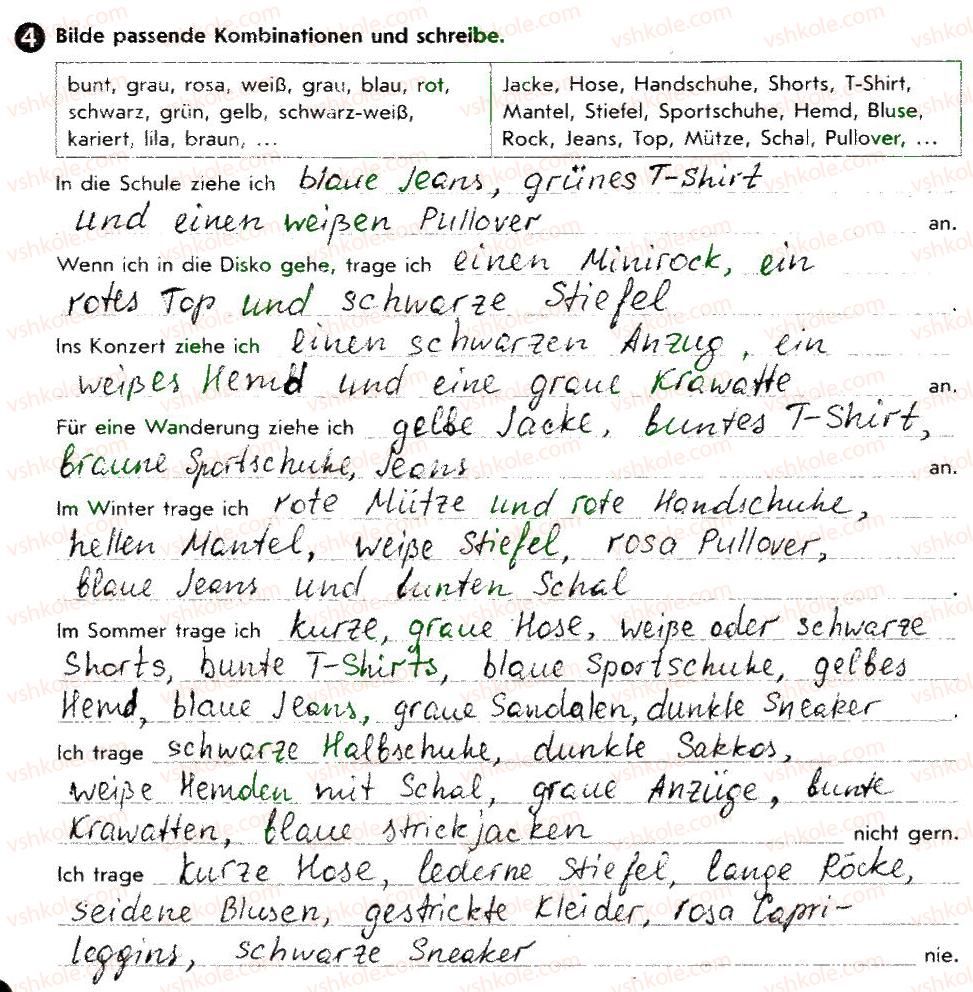 4 Bilde passende Kombinationen und schreibe.
bunt, grau, rosa, weiß, grau, blau, rot,
schwarz, grün, gelb, schwarz-weiß,
kariert, lila, braun, ...
Jacke, Hose, Handschuhe, Shorts, T-Shirt,
Mantel, Stiefel, Sportschuhe, Hemd, Bluse,
Rock, Jeans, Top, Mütze, Schal, Pullover, ...
In die Schule ziehe ich blaue Jeans, grünes T-Shirt
und einen weißen Pullover an.
Wenn ich in die Disko gehe, trage ich einen Minirock, ein
rotes Top und schwarze Stiefel.
Ins Konzert ziehe ich einen schwarzen Anzug, ein
weißes Hemd und eine graue Krawatte an.
Für eine Wanderung ziehe ich gelbe Jacke, buntes T-Shirt,
braune Sportschuhe, Jeans an.
Im Winter trage ich rote Mütze und rote Handschuhe,
hellen Mantel, weiße Stiefel, rosa Pullover,
blaue Jeans und bunten Schal.
Im Sommer trage ich kurze, graue Hose, weiße oder schwarze
Shorts, bunte T-Shirts, blaue Sportschuhe, gelbes
Hemd, blaue Jeans, graue Sandalen, dunkle Sneaker.
Ich trage schwarze Halbschuhe, dunkle Sakkos,
weiße Hemden mit Schal, graue Anzüge, bunte
Krawatten, blaue strickjacken nicht gern.
Ich trage kurze Hose, lederne Stiefel, lange Röcke,
seidene Blusen, gestrickte Kleider, rosa Capri-
leggins, schwarze Sneaker nie.
vshkole.com